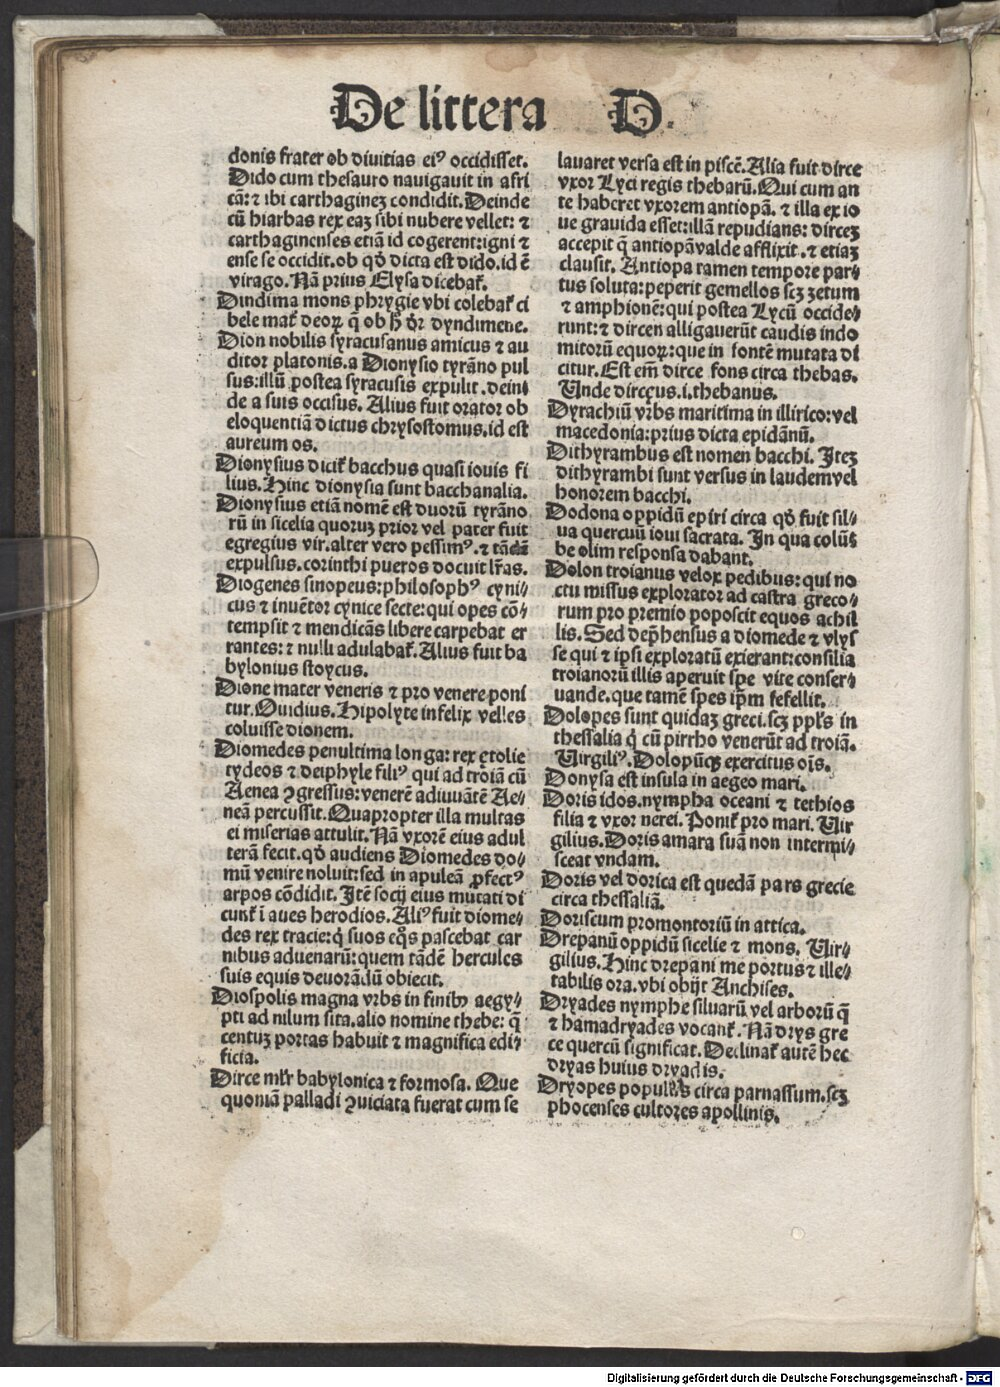 De littera D.
donis frater ob diuitias eiꝰ occidisset.
Dido cum thesauro nauigauit in afri
cā: ⁊ ibi carthagineȝ condidit. Deinde
cū hiarbas rex eaȝ sibi nubere vellet: ⁊
carthaginenses etiā id cogerent: igni ⁊
ense se occidit. ob qđ dicta est dido. id ē
virago. Nā prius Elysa dicebat̄.
Dindima mons phrygie vbi colebat̄ ci
bele mat̄ deoꝝ q̄ ob ħ dr̄ dyndimene.
Dion nobilis syracusanus amicus ⁊ au
ditor platonis. a Dionysio tyrāno pul
sus: illū postea syracusis expulit. dein⸗
de a suis occisus. Alius fuit orator ob
eloquentiā dictus chrysostomus. id est
aureum os.
Dionysius dicit̄ bacchus quasi iouis fi
lius. Hinc dionysia sunt bacchanalia.
Dionysius etiā nomē est duorū tyrāno
rū in sicelia quoruȝ prior vel pater fuit
egregius vir. alter vero pessimꝰ. ⁊ tādē
expulsus. corinthi pueros docuit lr̄as.
Diogenes sinopeus: philosophꝰ cyni⸗
cus ⁊ inuētor cynice secte: qui opes cō⸗
tempsit ⁊ mendicās libere carpebat er
rantes: ⁊ nulli adulabat̄. Alius fuit ba
bylonius stoycus.
Dione mater veneris ⁊ pro venere poni
tur. Ouidius. Hipolyte infelix velles
coluisse dionem.
Diomedes penultima longa: rex ętolie
tydeos ⁊ deiphyle filiꝰ qui ad troiā cū
Aenea ꝯgressus: venerē adiuuātē Ae⸗
neā percussit. Quapropter illa multas
ei miserias attulit. Nā vxorē eius adul
terā fecit. qđ audiens Diomedes do⸗
mū venire noluit: sed in apuleā ꝓfectꝰ
arpos cōdidit. Itē socij eius mutati di
cunt̄ ī aues herodios. Aliꝰ fuit diome⸗
des rex tracie: q̇ suos eq̊s pascebat car
nibus aduenarū: quem tādē hercules
suis equis deuorādū obiecit.
Diospolis magna vrbs in finibꝰ aegy⸗
pti ad nilum sita. alio nomine thebe: q̄
centuȝ portas habuit ⁊ magnifica edi⸗
ficia.
Dirce ml̄r babylonica ⁊ formosa. Que
quoniā palladi ꝯuiciata fuerat cum se
lauaret versa est in piscē. Alia fuit dirce
vxor Lyci regis thebarū. Qui cum an
te haberet vxorem antiopā. ⁊ illa ex io
ue grauida esset: illā repudians: dirceȝ
accepit q̄ antiopā valde afflixit. ⁊ etiaȝ
clausit. Antiopa tamen tempore par⸗
tus soluta: peperit gemellos scȝ zetum
⁊ amphionē: qui postea Lycū occide⸗
runt: ⁊ dircen alligauerūt caudis indo
mitorū equoꝝ: que in fontē mutata di
citur. Est em̄ dirce fons circa thebas.
Unde dircęus .i. thebanus.
Dyrachiū vrbs maritima in illirico: vel
macedonia: prius dicta epidānū.
Dithyrambus est nomen bacchi. Iteȝ
dithyrambi sunt versus in laudem vel
honorem bacchi.
Dodona oppidū epiri circa qđ fuit sil⸗
ua quercuū ioui sacrata. In qua colūs
be olim responsa dabant.
Dolon troianus velox pedibus: qui no
ctu missus explorator ad castra greco⸗
rum pro premio poposcit equos achil
lis. Sed dep̄hensus a diomede ⁊ vlys
se qui ⁊ ipsi exploratū exierant: consilia
troianorū illis aperuit spe vite conser⸗
uande. que tamē spes ip̄m fefellit.
Dolopes sunt quidaȝ greci. scȝ ppl̄s in
thessalia q̇ cū pirrho venerūt ad troiā.
Virgiliꝰ. Dolopūqȝ exercitus oīs.
Donysa est insula in aegeo mari.
Doris idos. nympha oceani ⁊ tethios
filia ⁊ vxor nerei. Ponit̄ pro mari. Vir
gilius. Doris amara suā non intermi⸗
sceat vndam.
Doris vel dorica est quedā pars grecie
circa thessaliā.
Doriscum promontoriū in attica.
Drepanū oppidū sicelie ⁊ mons. Vir⸗
gilius. Hinc drepani me portus ⁊ ille⸗
tabilis ora. vbi obijt Anchises.
Dryades nymphe siluarū vel arborū q̄
⁊ hamadryades vocant̄. Nā drys gre
ce quercū significat. Declinat̄ autē hec
dryas huius dryadis.
Dryopes populus circa parnassum. scȝ
phocenses cultores apollinis.
Digitalisierung gefördert durch die Deutsche Forschungsgemeinschaft - DFG